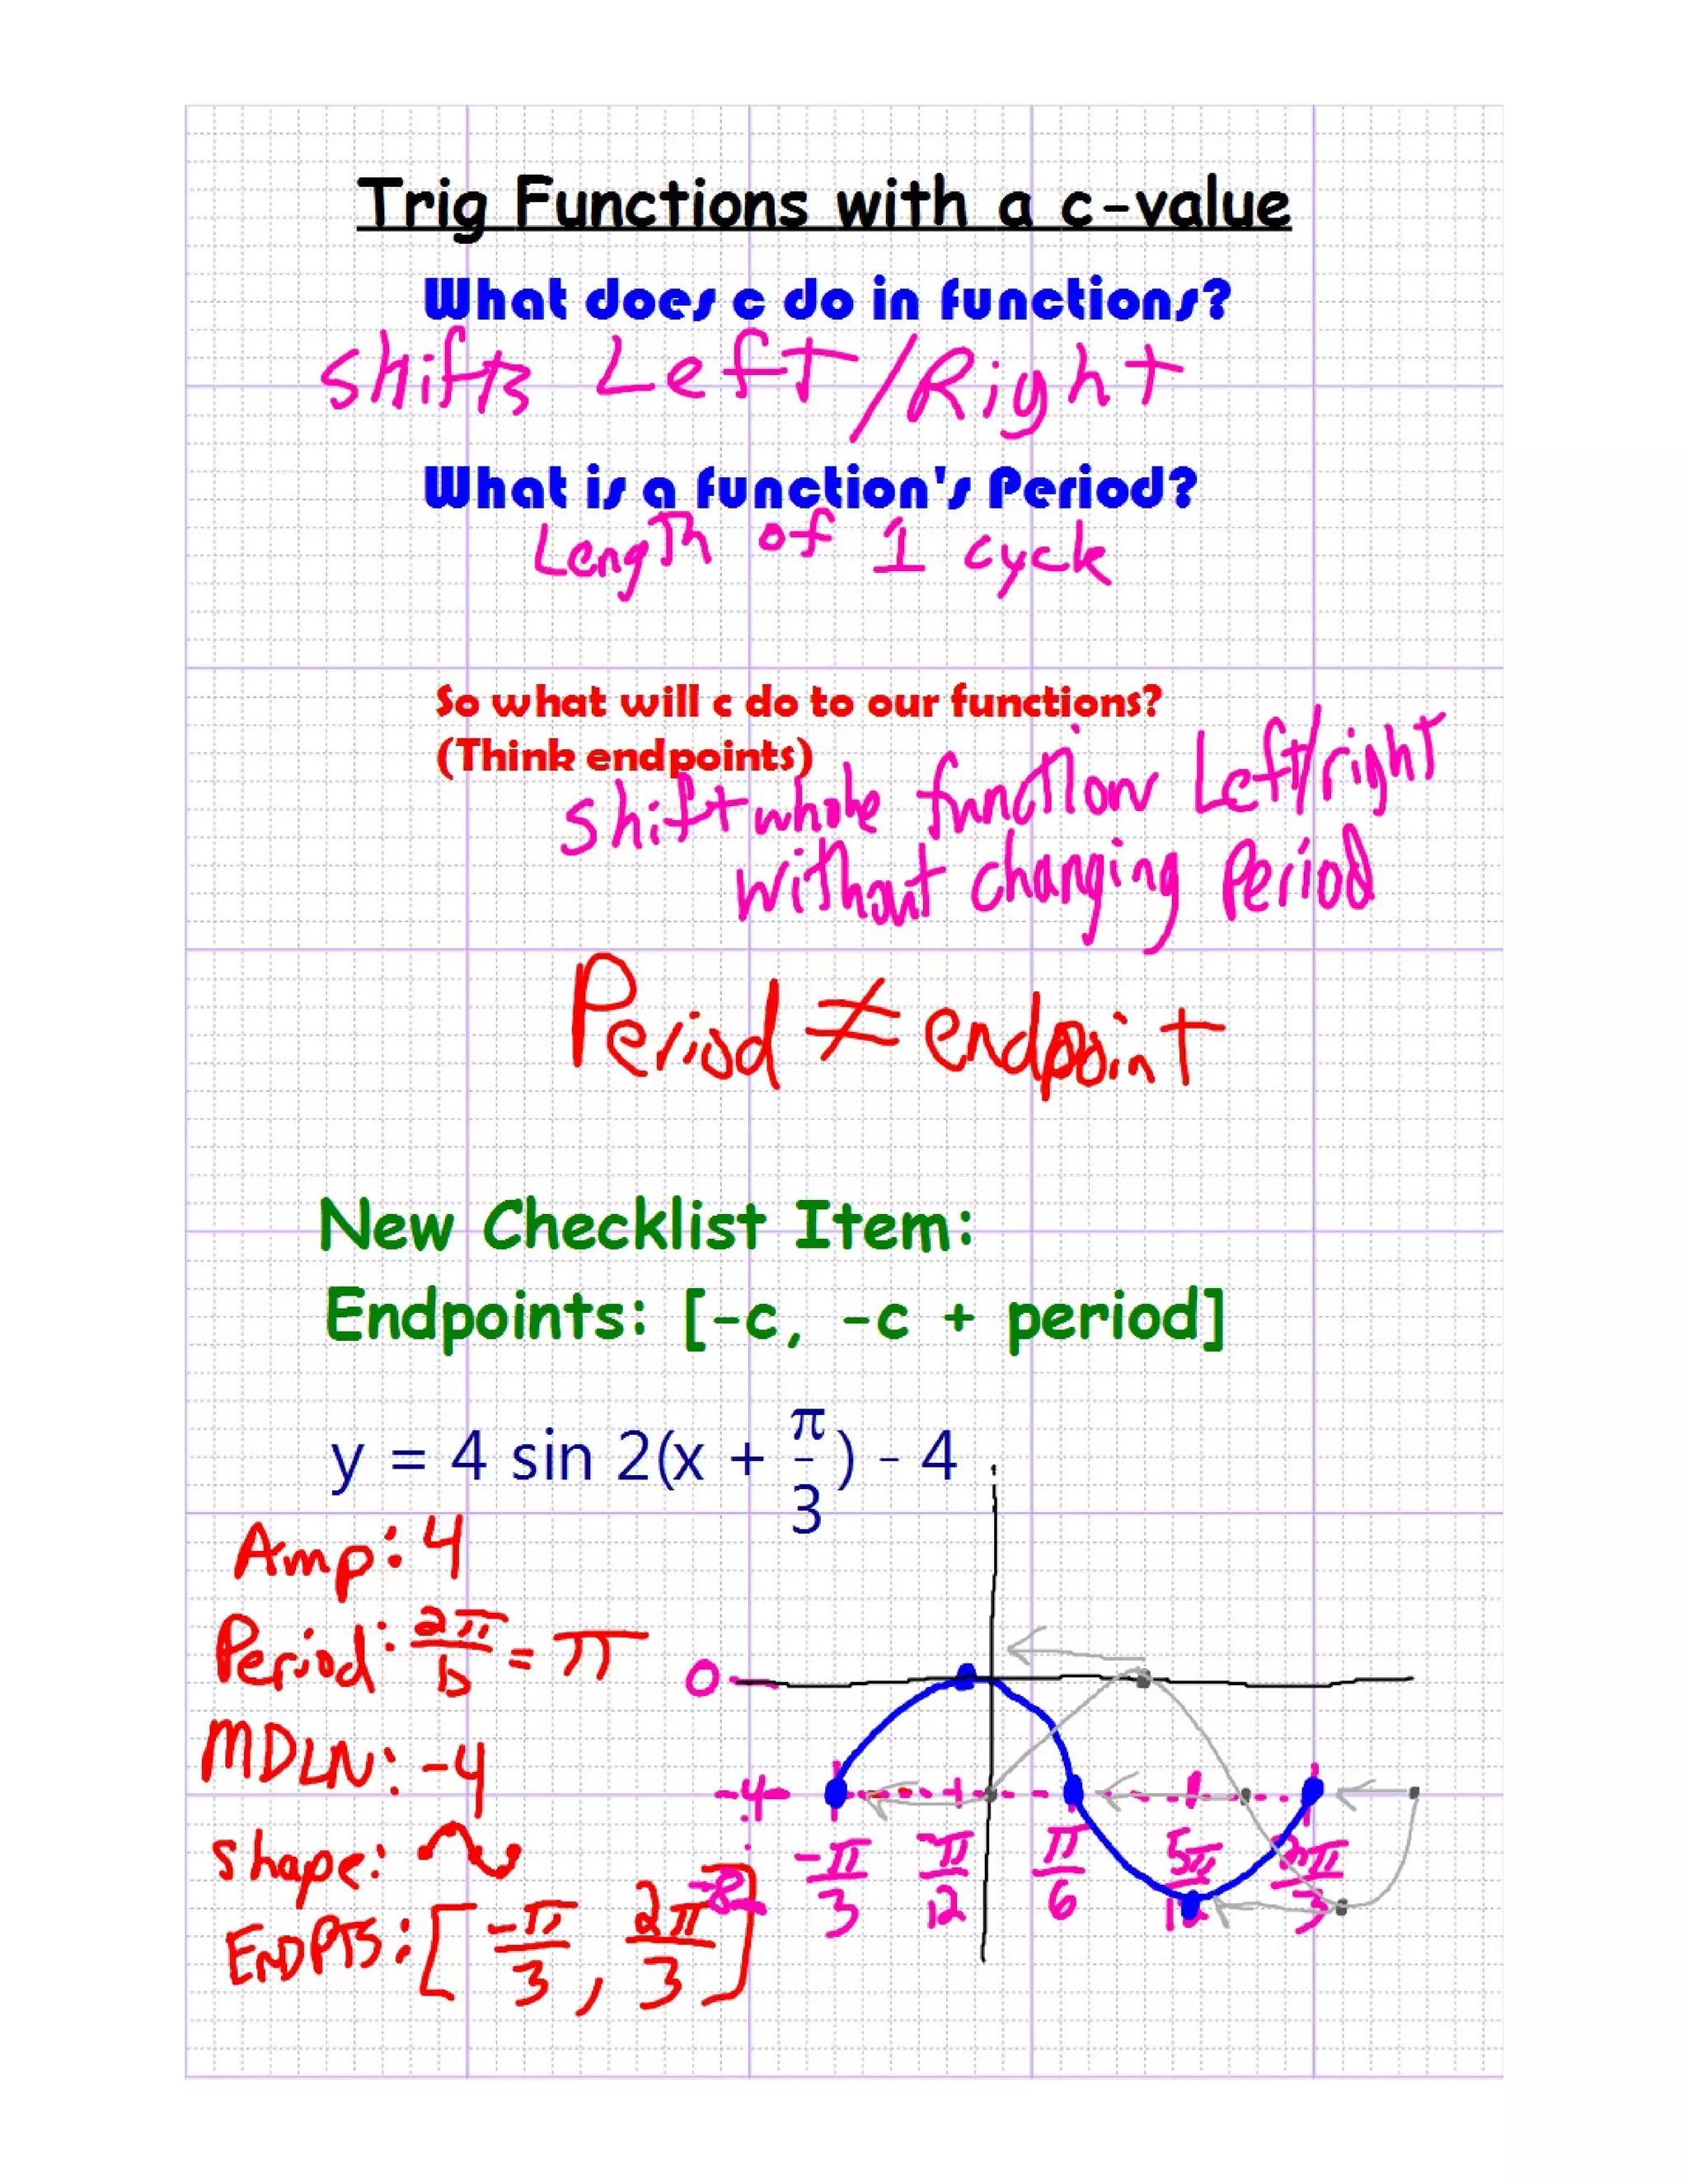 Trig Functions with a c-value
What does c do in functions?
Shifts Left/Right
What is a function's Period?
Length of 1 cycle
So what will c do to our functions?
(Think endpoints)
Shift whole function Left/right
without changing Period
Period ≠ endpoint
New Checklist Item:
Endpoints: [-c, -c + period]
y = 4 sin 2(x + π/3) - 4
Amp: 4
Period: 2π/b = π
MDLN: -4
Shape:
ENDPTS: [-π/3, 2π/3]
0
-4
-8
-π/3 π/6 2π/3